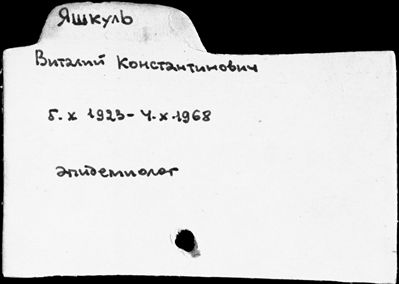 Яшкуль
Виталий Константинович
5.x 1923-4.x.1968
эпидемиолог